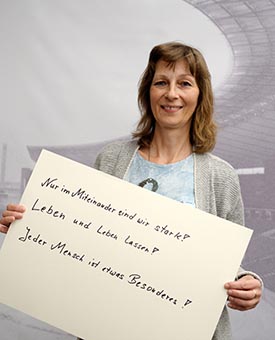 Nur im Miteinander sind wir stark!
Leben und Leben lassen!
Jeder Mensch ist etwas Besonderes!